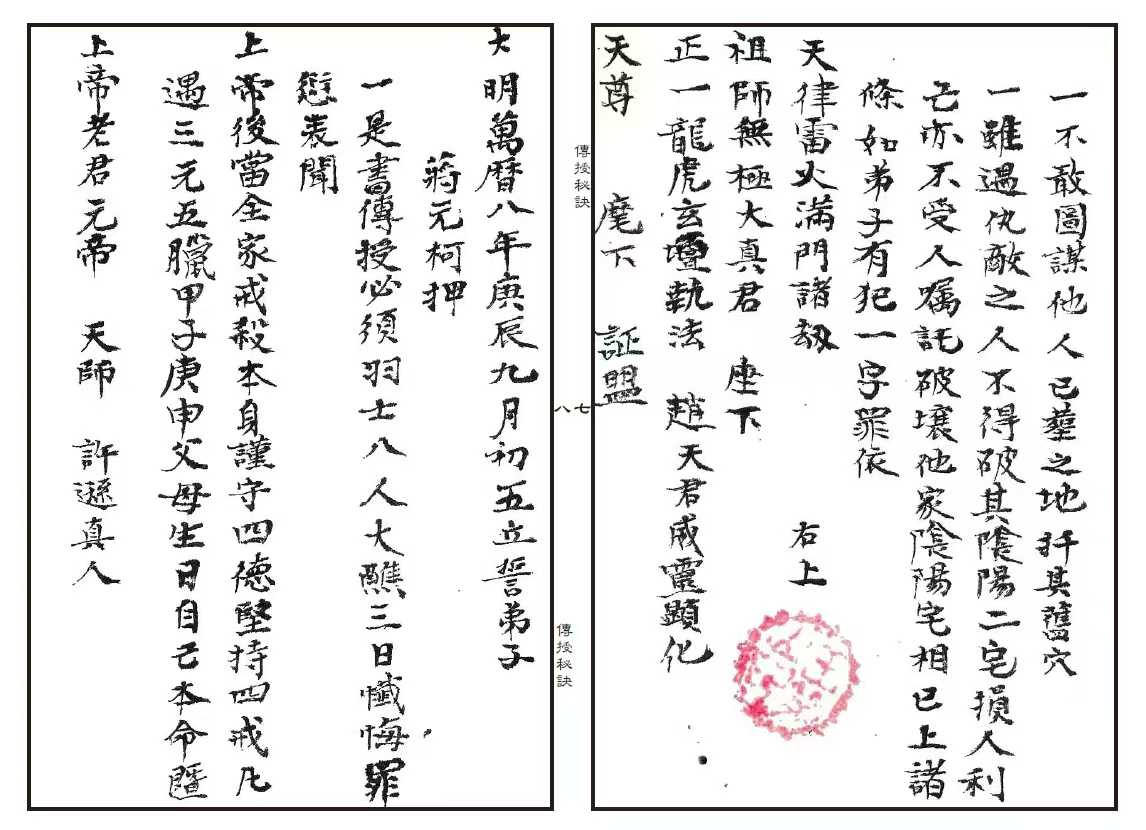 一不敢圖謀他人已塟之地扦其舊穴
一雖遇仇敵之人不得破其陰陽二宅損人利
己亦不受人囑託破壞他家陰陽宅相已上諸
條如弟子有犯一字罪依
天律雷火滿門諸劫　右上
祖師無極大真君　座下
正一龍虎玄壇執法　趙天君威靈顯化
天尊　麾下　証盟
傳授秘訣
七
八
傳授秘訣
大明萬曆八年庚辰九月初五立誓弟子
蔣元柯押
一是書傳授必須羽士八人大醮三日懺悔罪
愆表聞
上帝後當全家戒殺本身謹守四德堅持四戒凡
遇三元五臘甲子庚申父母生日自己本命曁
上帝老君元帝　天師　許遜真人